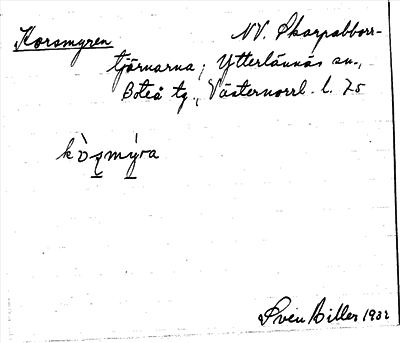 Korsmyren NV. Skarpabborr-
tjärnarna; Ytterlännäs sn.,
Boteå tg., Västernorrl. l. 75
kòs̲mý̲ra
Sven Biller 1932